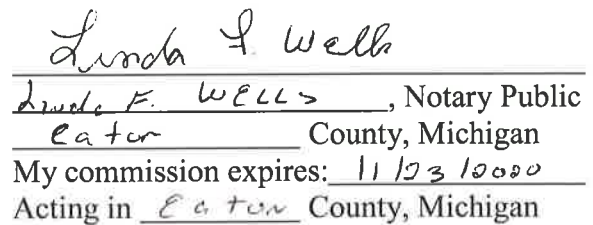 Linda F. Wells
Linda F. WELLS, Notary Public
Eaton County, Michigan
My commission expires: 11/23/2020
Acting in Eaton County, Michigan